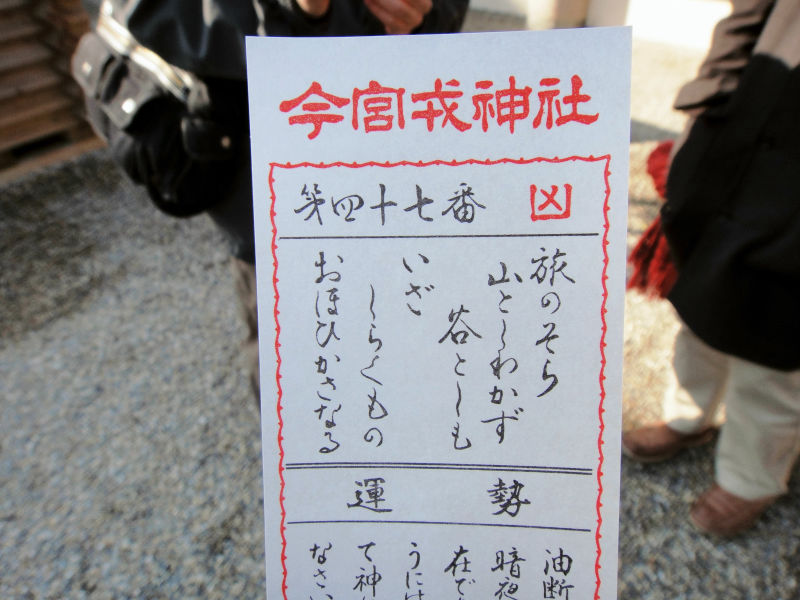 今宮戎神社
第四十七番 凶
旅のそら
山としわかず
谷としも
いざ
しらくもの
おほひかさなる
運勢
油断
暗夜
在で
うには
て神
なさい